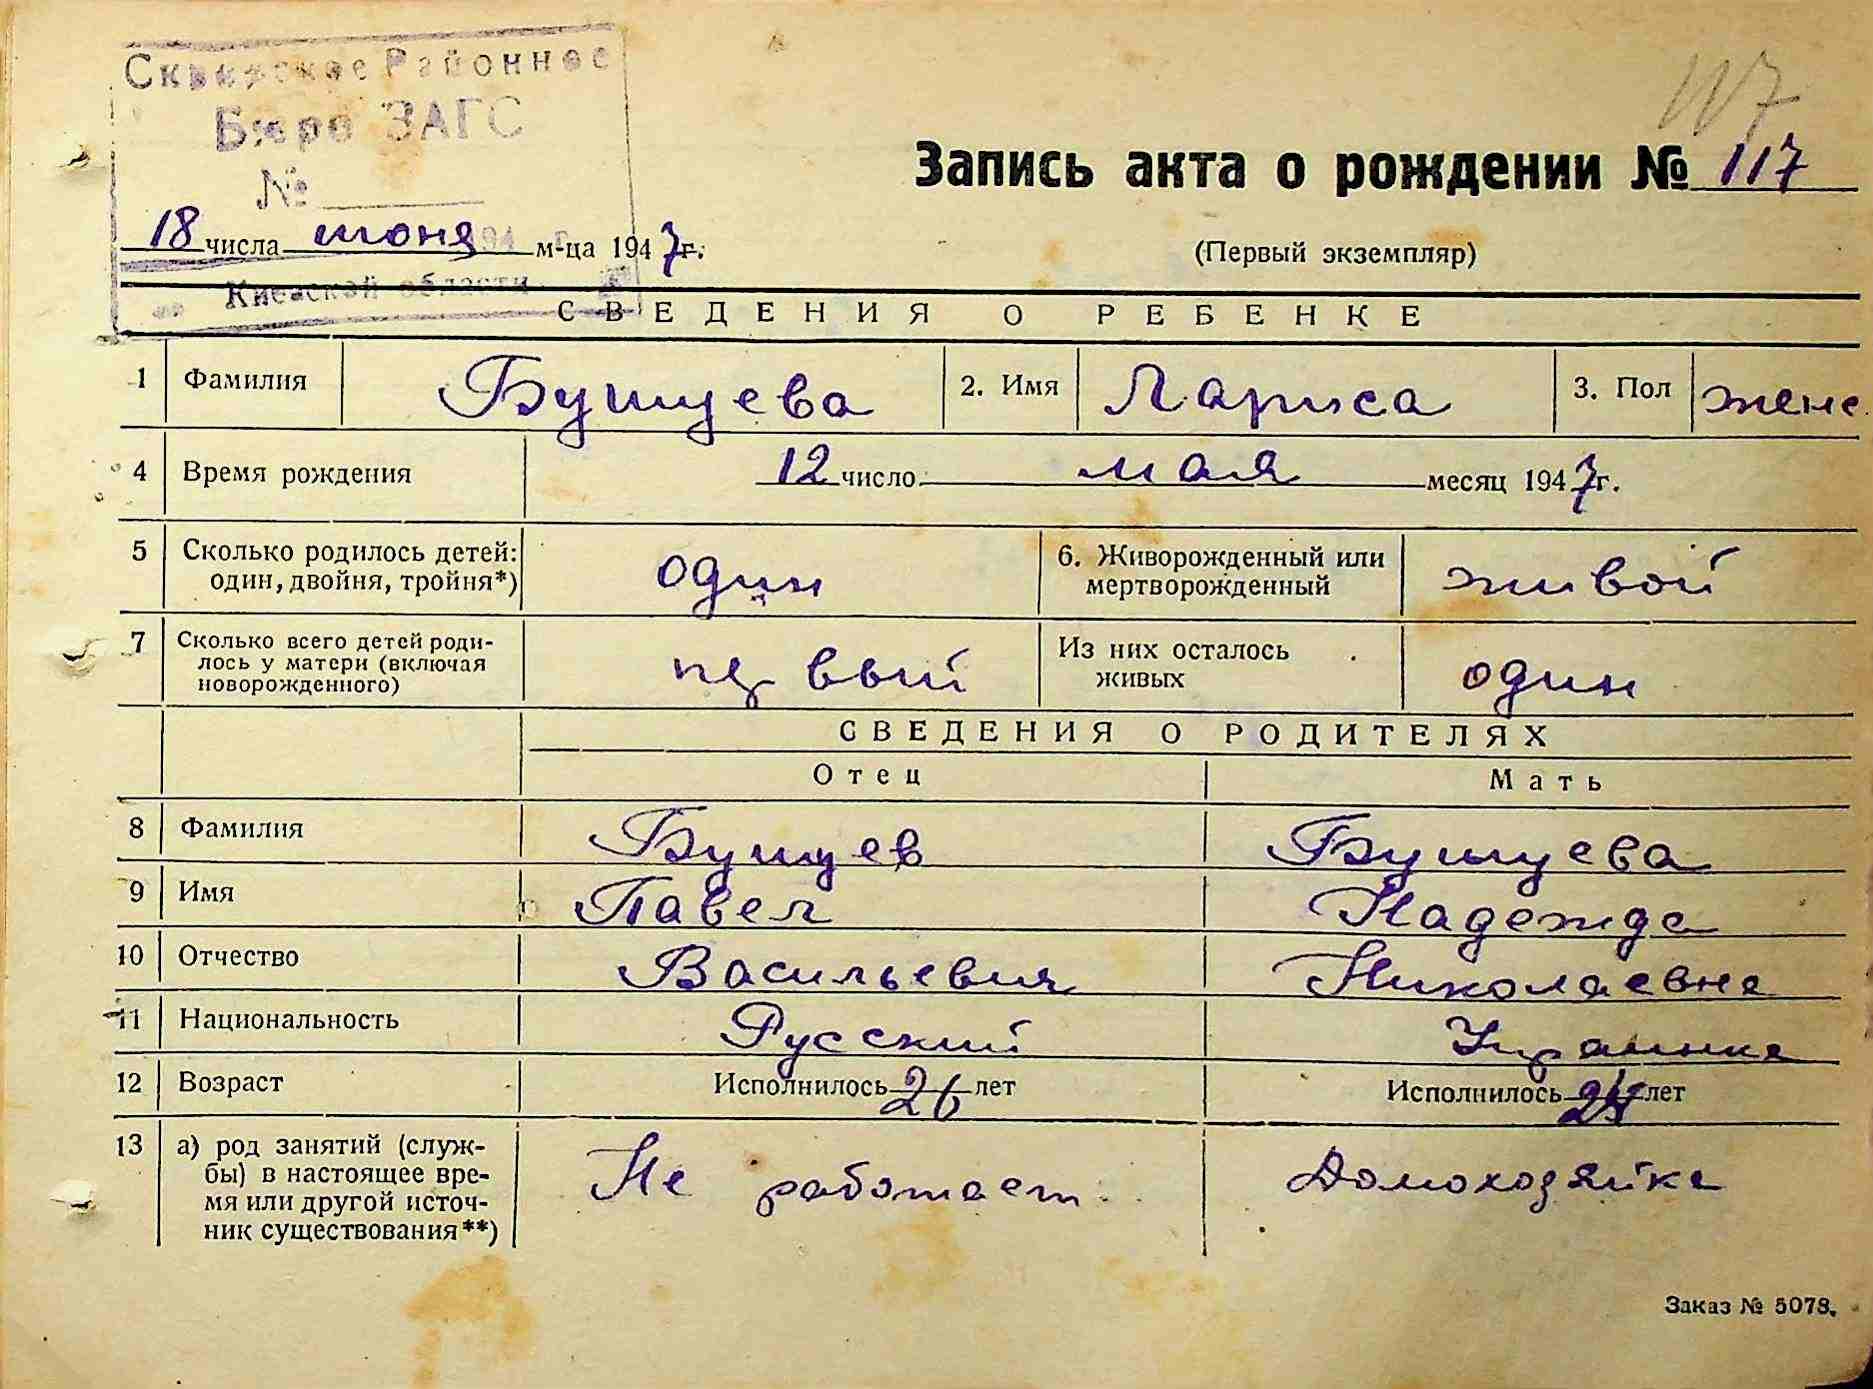 Сквирское Районное
Бюро ЗАГС
№
117
Запись акта о рождении № 117
18 числа июня м-ца 1947 г.
(Первый экземпляр)
Киевской области
СВЕДЕНИЯ О РЕБЕНКЕ
1 Фамилия Бушуева 2. Имя Лариса 3. Пол женс
4 Время рождения 12 число мая месяц 1947 г.
5 Сколько родилось детей: один 6. Живорожденный или живой
один, двойня, тройня*) мертворожденный
7 Сколько всего детей роди- первый Из них осталось один
лось у матери (включая живых
новорожденного)
СВЕДЕНИЯ О РОДИТЕЛЯХ
Отец Мать
8 Фамилия Бушуев Бушуева
9 Имя Павел Надежда
10 Отчество Васильевич Николаевна
11 Национальность Русский Украинка
12 Возраст Исполнилось 26 лет Исполнилось лет
13 а) род занятий (служ- Не работает Домохозяйка
бы) в настоящее вре-
мя или другой источ-
ник существования**)
Заказ № 5078.